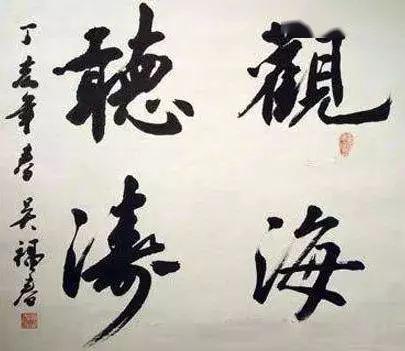 觀海
聽濤
丁亥年春 吴福春